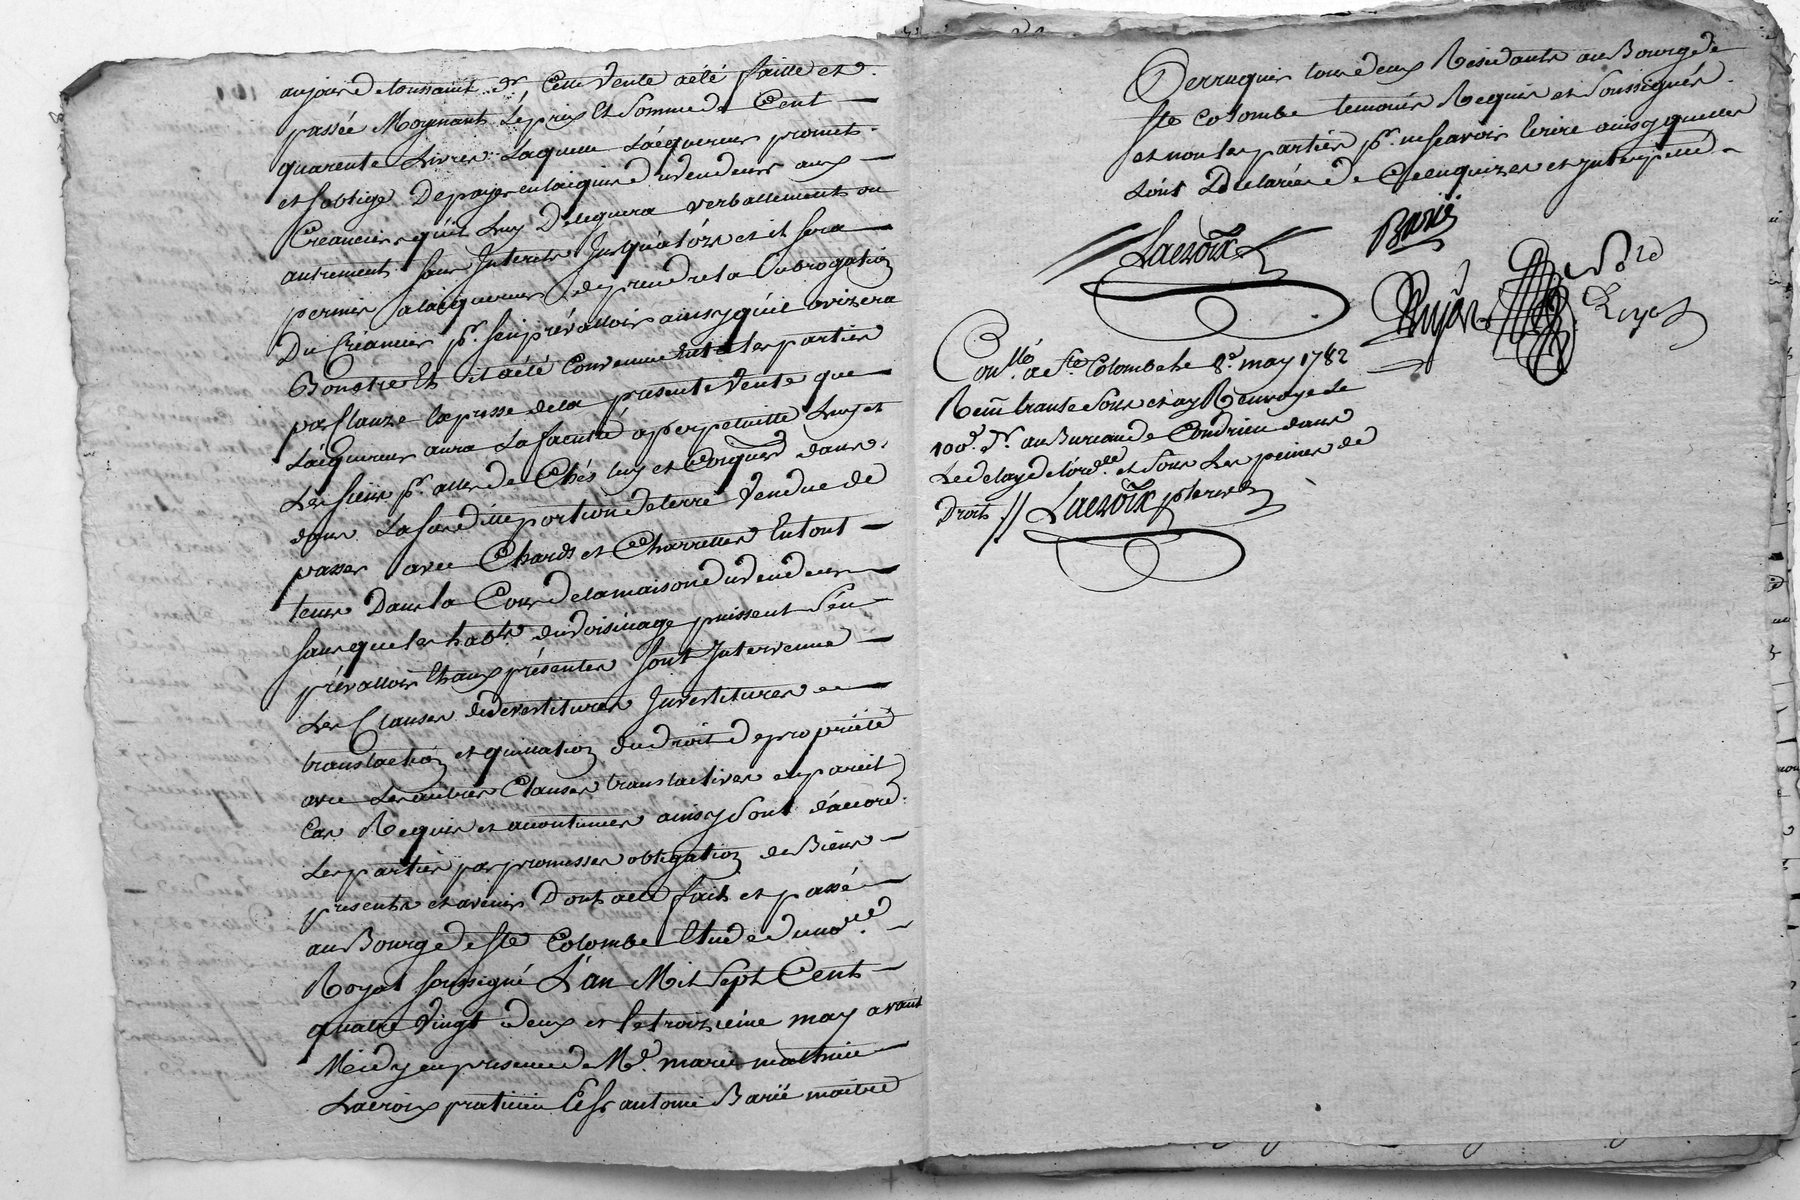 aujour de toussaint dr, Cette Vente a été faitte et
passée Moyenant Le prix Et Somme de Cent
quarente Livres Laquelle L'acquereur promet
et s'oblige De payer en l'acquit du vendeur aux
Creanciers qu'il Luy Deleguera verballement ou
autrement sans Interets Jusqu'alors et il sera
permis a l'acquereur de prendre la subrogation
Du Créancier pr. s'en prévalloir ainsy qu'il avizera
Bon etre Et il a été Convenu Entre les parties
par Clauze Expresse de la presente Vente que
L'acquereur aura La faculté a perpetuitté Luy et
Les siens pr. aller de Chés luy et dans
dans La susditte portion de terre Vendue de
passer avec Chards et Charrettes En tout
tems Dans la Cour de la maison du vendeur
sans que les habts. du voisinage puissent S'en
prévalloir Et aux présentes sont Intervenue
Les Clauses de devestitures Investitures
translation et quittation du droit de propriété
avec Les autres Clauses translatives en pareil
Cas Requis et acoutumées ainsy Sont d'accord
Les parties par promesses obligation de Biens
presents et avenir Dont acte fait et passé
au Bourg de Ste Colombe Etude du nore.
Royal soussigné L'an Mil Sept Cent
quatre Vingt deux et le troizieme may avant
Midy en presence de Me. marie mathieu
Lacroix praticien Et sr antoine Barië maitre
Perruquier tous deux Residants au Bourg de
Ste Colombe temoins Requis et Soussignés
et non les parties pr. ne scavoir Ecrire ainsy qu'elles
L'ont Déclarées de Ce Enquizes et Interpellées
Lacroix
Barië
Conllé. a Ste Colombe le 8e. may 1782
Reçu trante Sous et ay Renvoyé Le
100e. dr. au Bureau de Condrieu dans
Le delay de l'ordce. et sous Les peines de
Droits // Lacroix